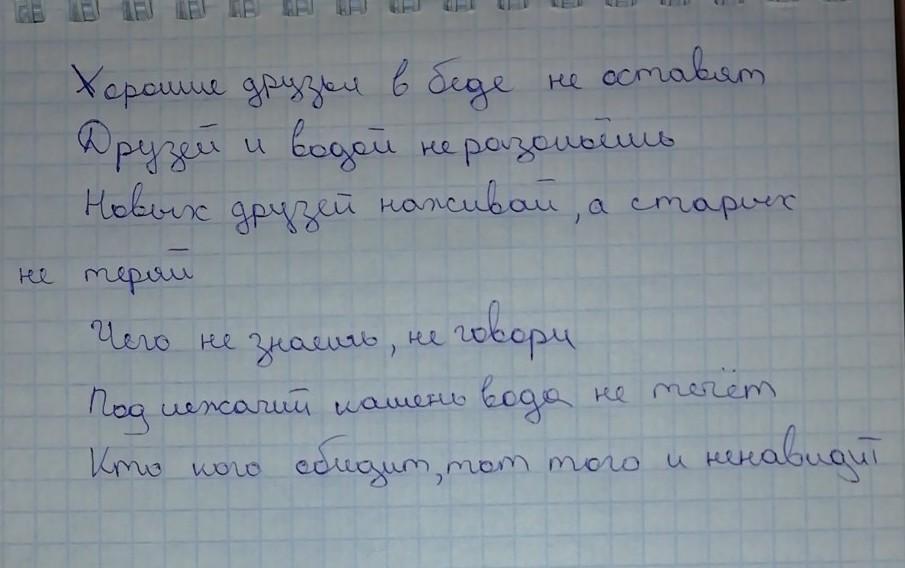 Хорошие друзья в беде не оставят
Друзей и водой не разольёшь
Новых друзей наживай, а старых
не теряй
Чего не знаешь, не говори
Под лежачий камень вода не течёт
Кто кого обидит, тот того и ненавидит